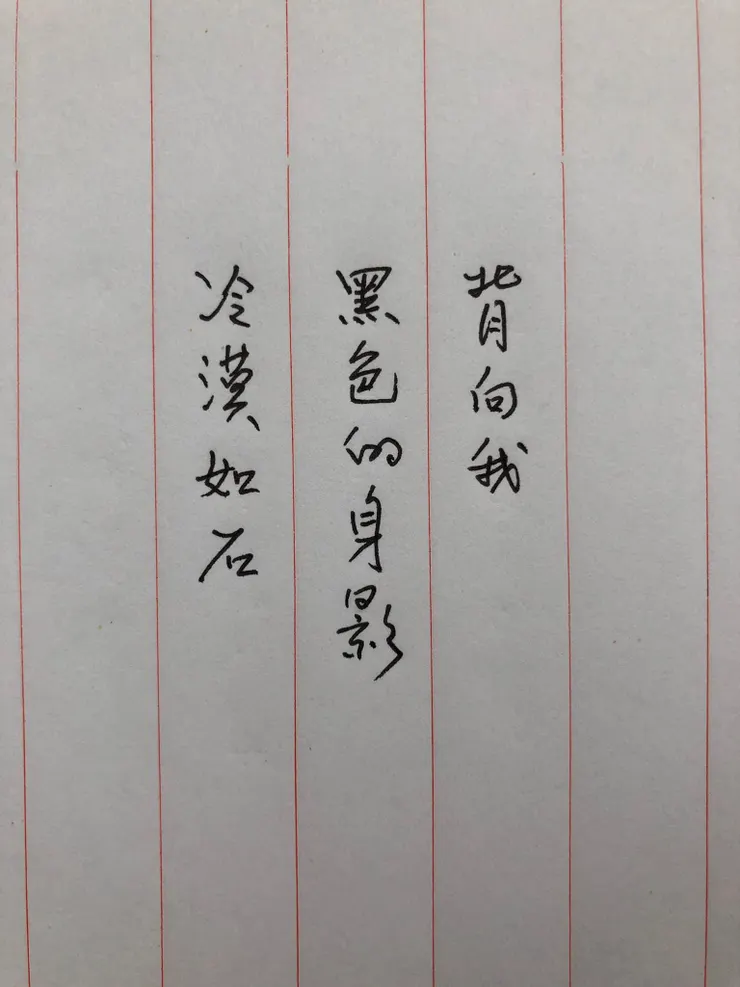 背向我
黑色的身影
冷漠如石